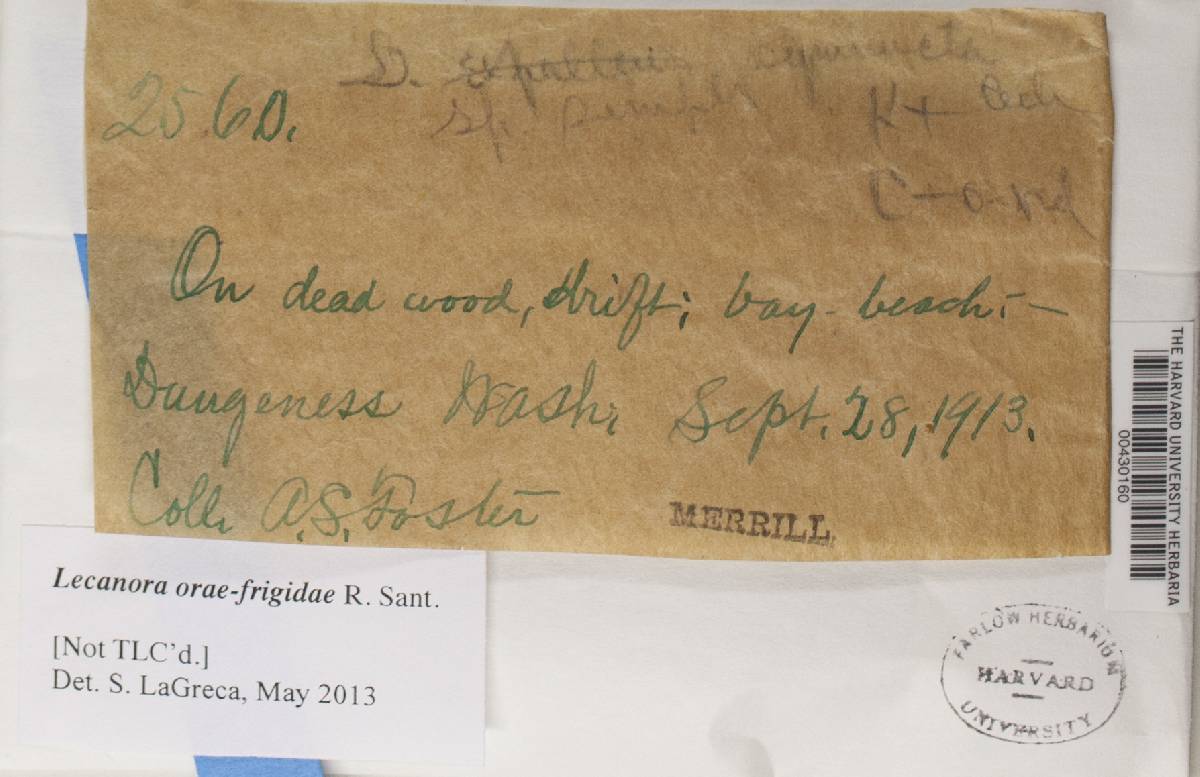 2560.
K+
On dead wood, drift; bay beach:—
Dungeness Wash. Sept. 28, 1913.
Coll. A.S. Foster
MERRILL
Lecanora orae-frigidae R. Sant.
[Not TLC'd.]
Det. S. LaGreca, May 2013
THE HARVARD UNIVERSITY HERBARIA
00430160
FARLOW HERBARIUM
HARVARD
UNIVERSITY